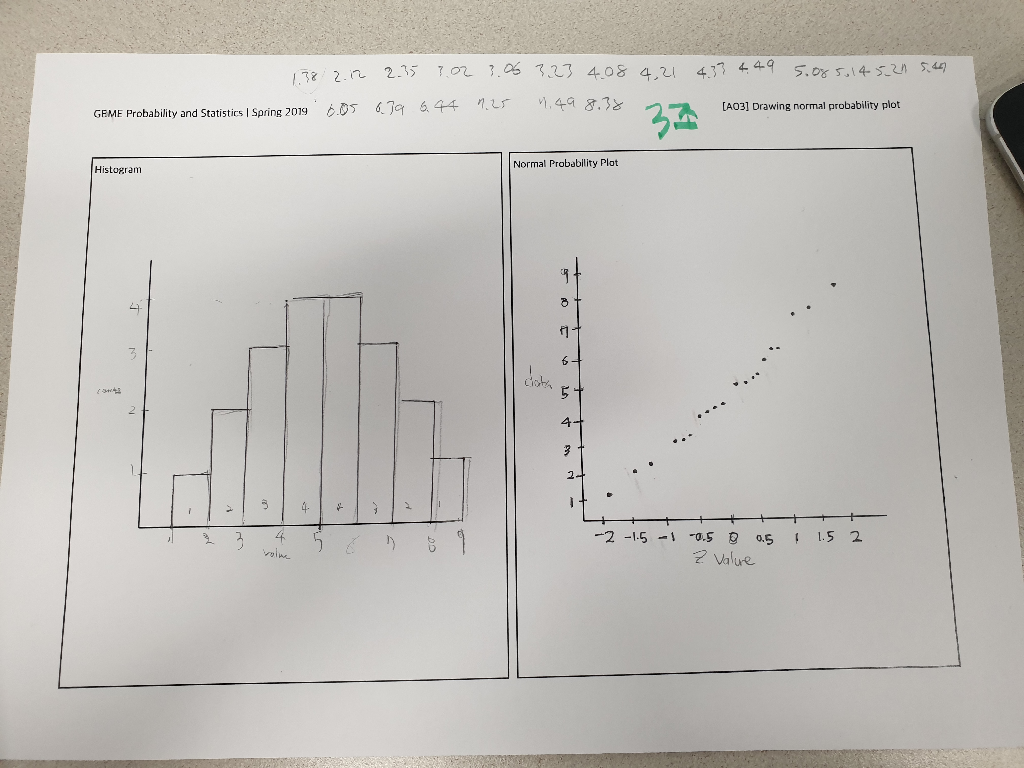 1.38 2.12 2.35 3.02 3.06 3.23 4.08 4.21 4.33 4.49 5.08 5.14 5.27 5.47
GBME Probability and Statistics | Spring 2019 6.05 6.39 6.44 7.25 7.49 8.38 3조 [A03] Drawing normal probability plot
Histogram
4
3
2
1
1 2 3 4 4 3 2 1
1 2 3 4 5 6 7 8 9
value
Normal Probability Plot
9
8
7
6
data
5
4
3
2
1
-2 -1.5 -1 -0.5 0 0.5 1 1.5 2
Z Value